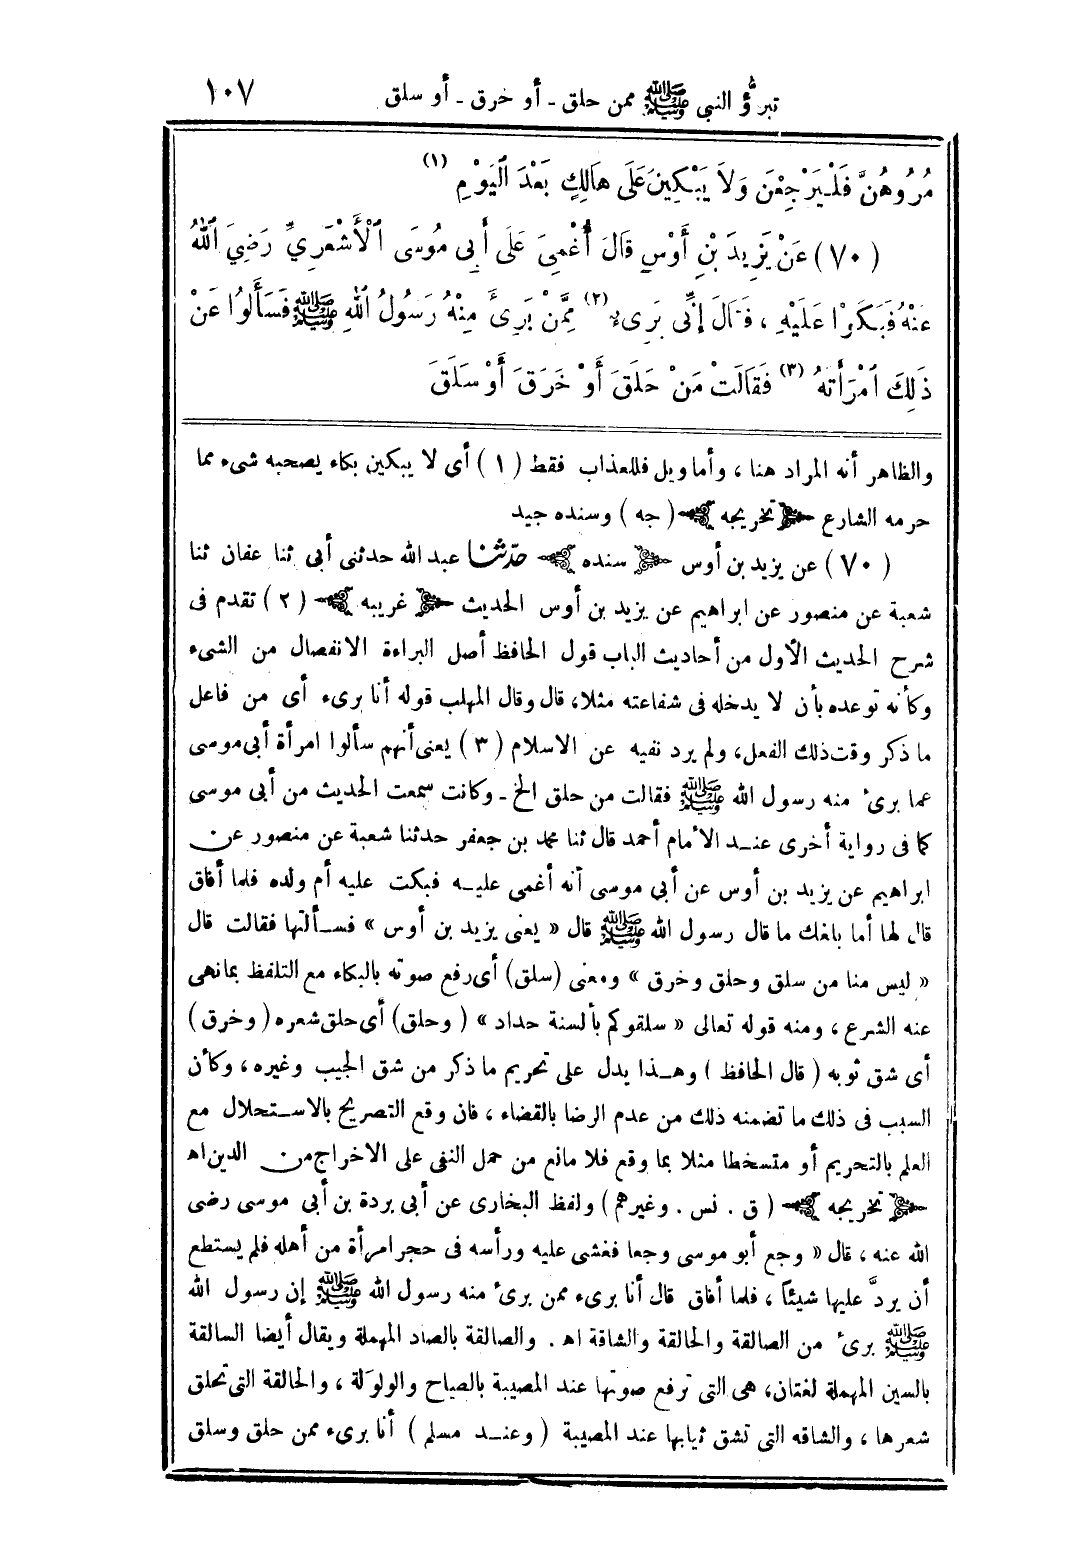 تبرؤ النبي ﷺ ممن حلق - أو خرق - أو سلق ١٠٧
مُرُوهُنَّ فَلْيَرْجِعْنَ وَلاَ يَبْكِينَ عَلَى هَالِكٍ بَعْدَ الْيَوْمِ (١)
(٧٠) عَنْ يَزِيدَ بْنِ أَوْسٍ قَالَ أُغْمِىَ عَلَى أَبِى مُوسَى الْأَشْعَرِيِّ رَضِيَ اللهُ
عَنْهُ فَبَكَوْا عَلَيْهِ ، فَقَالَ إِنِّى بَرِىءٌ (٢) مِمَّنْ بَرِئَ مِنْهُ رَسُولُ اللهِ ﷺ فَسَأَلُوا عَنْ
ذَلِكَ امْرَأَتَهُ (٣) فَقَالَتْ مَنْ حَلَقَ أَوْ خَرَقَ أَوْ سَلَقَ
والظاهر أنه المراد هنا ، وأما ويل فللعذاب فقط (١) أى لا يبكين بكاء يصحبه شىء مما
حرمه الشارع ﴿تخريجه﴾ ( جه ) وسنده جيد
(٧٠) عن يزيد بن أوس ﴿سنده﴾ حدّثنا عبد الله حدثنى أبى ثنا عفان ثنا
شعبة عن منصور عن ابراهيم عن يزيد بن أوس الحديث ﴿غريبه﴾ (٢) تقدم فى
شرح الحديث الأول من أحاديث الباب قول الحافظ أصل البراءة الانفصال من الشىء
وكأنه توعده بأن لا يدخله فى شفاعته مثلا، قال وقال المهلب قوله أنا برىء أى من فاعل
ما ذكر وقت ذلك الفعل، ولم يرد نفيه عن الاسلام (٣) يعنى أنهم سألوا امرأة أبى موسى
عما برئ منه رسول الله ﷺ فقالت من حلق الخ - وكانت سمعت الحديث من أبى موسى
كما فى رواية أخرى عنـد الأمام أحمد قال ثنا محمد بن جعفر حدثنا شعبة عن منصور عن
ابراهيم عن يزيد بن أوس عن أبي موسى أنه أغمى عليـه فبكت عليه أم ولده فلما أفاق
قال لها أما بلغك ما قال رسول الله ﷺ قال « يعنى يزيد بن أوس » فسـألتها فقالت قال
« ليس منا من سلق وحلق وخرق » ومعنى (سلق) أى رفع صوته بالبكاء مع التلفظ بما نهى
عنه الشرع ، ومنه قوله تعالى « سلقوكم بألسنة حداد » ( وحلق) أى حلق شعره ( وخرق )
أى شق ثوبه ( قال الحافظ ) وهـذا يدل على تحريم ما ذكر من شق الجيب وغيره ، وكأن
السبب فى ذلك ما تضمنه ذلك من عدم الرضا بالقضاء ، فان وقع التصريح بالاسـتحلال مع
العلم بالتحريم أو متسخطا مثلا بما وقع فلا مانع من حمل النفى على الاخراج من الدين اه
﴿تخريجه﴾ ( ق . نس . وغيرهم ) ولفظ البخارى عن أبى بردة بن أبي موسى رضى
الله عنه ، قال « وجع أبو موسى وجعا فغشى عليه ورأسه فى حجر امرأة من أهله فلم يستطع
أن يردَّ عليها شيئاً ، فلما أفاق قال أنا برىء ممن برئ منه رسول الله ﷺ إن رسول الله
ﷺ برئ من الصالقة والحالقة والشاقة اه . والصالقة بالصاد المهملة ويقال أيضا السالقة
بالسين المهملة لغتان، هى التى ترفع صوتها عند المصيبة بالصياح والولولة ، والحالقة التى تحلق
شعرها ، والشاقه التى تشق ثيابها عند المصيبة ( وعنـد مسلم ) أنا برىء ممن حلق وسلق